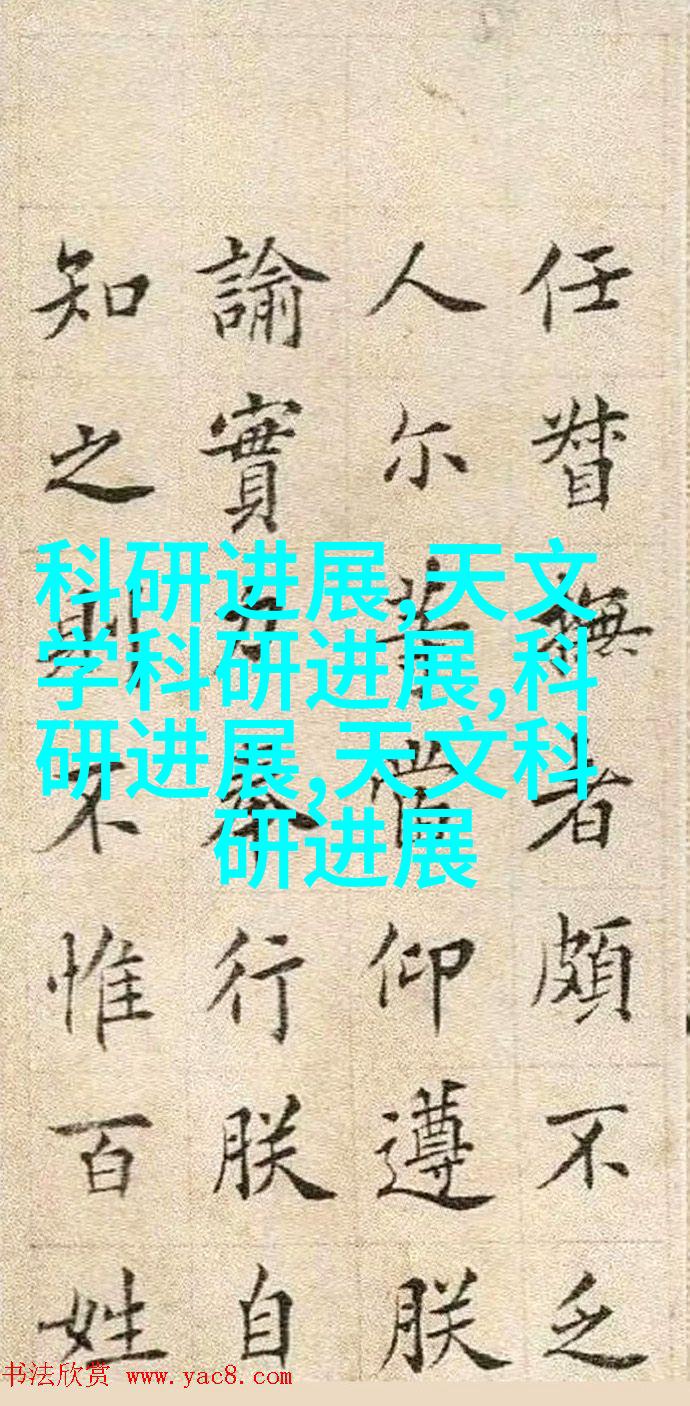 任督撫者頗不乏
人尔等當仰遵朕
諭實力奉行朕自
知之則不惟百姓
科研进展,天文
学科研进展,科
研进展,天文科
研进展
书法欣赏 www.yac8.com